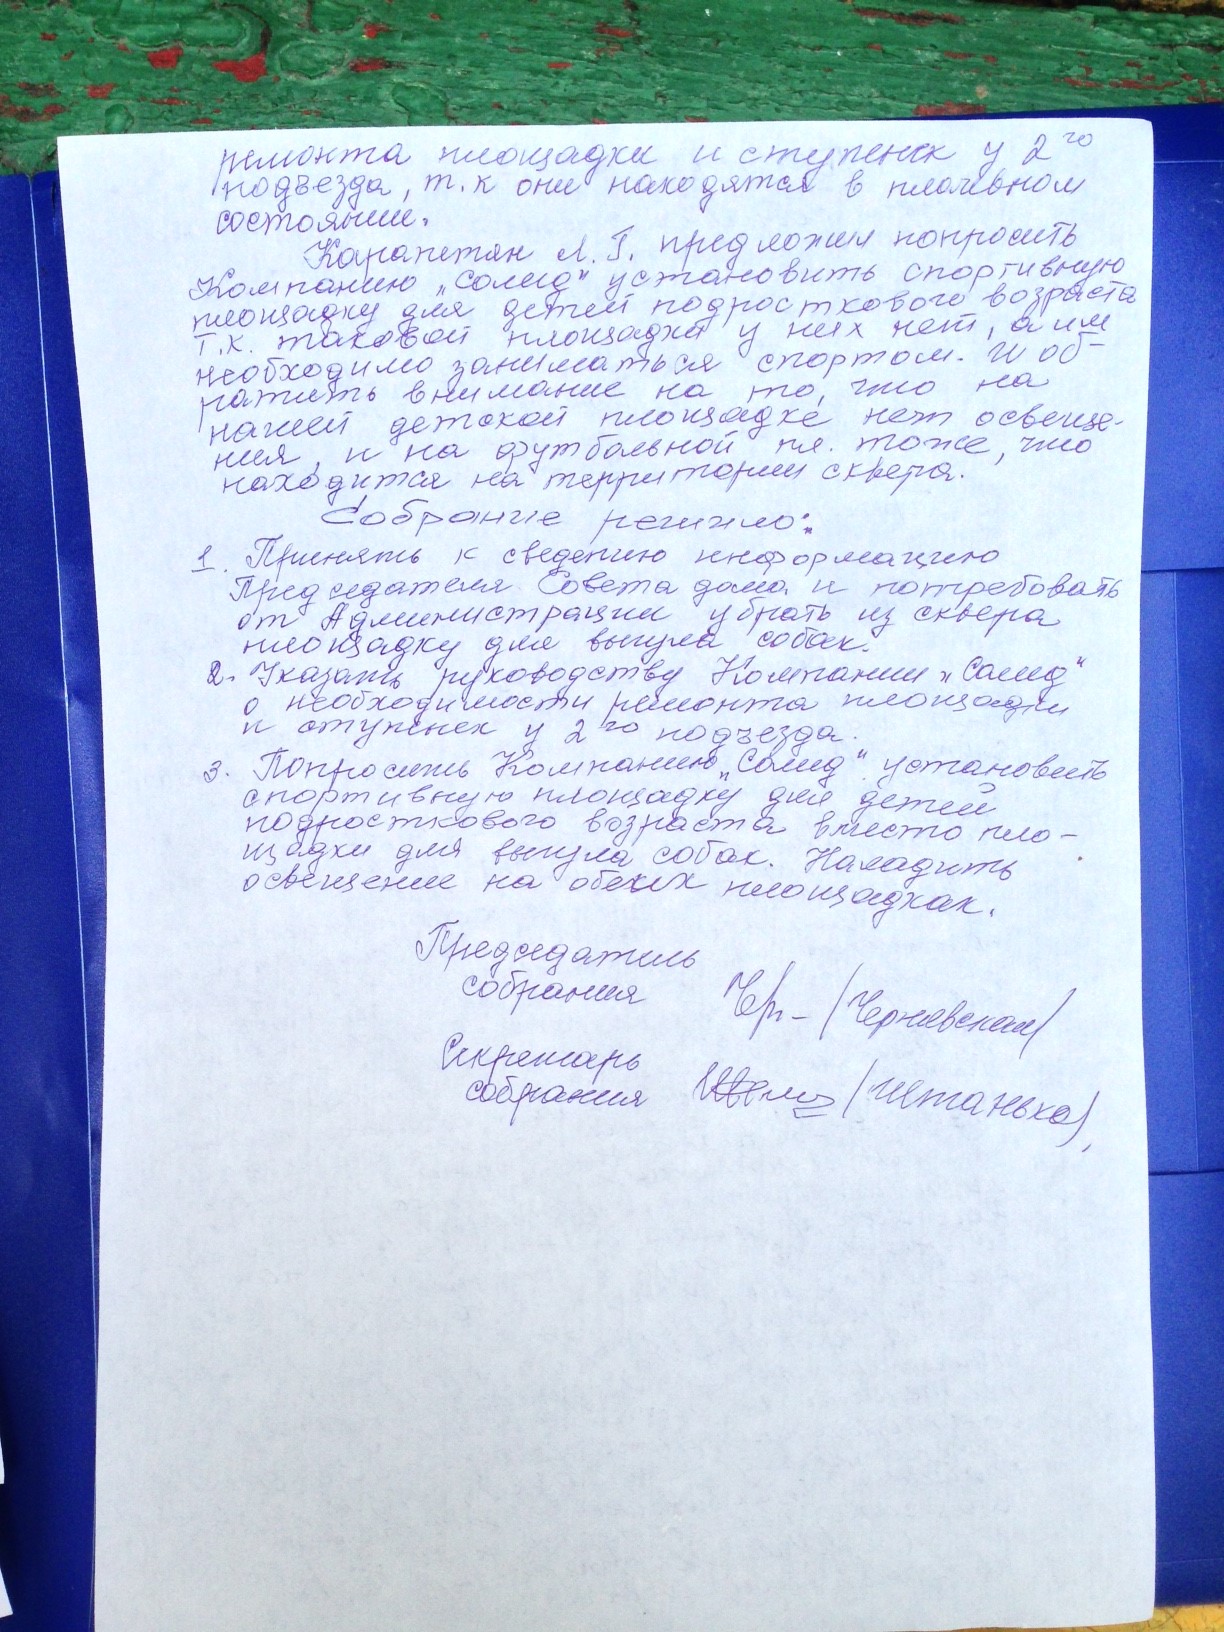 ремонта площадки и ступенек у 2го
подъезда, т.к они находятся в плачевном
состоянии.
Карапетян Л. Г. предложил попросить
Компанию „Солид" установить спортивную
площадку для детей подросткового возраста
т.к. таковой площадки у них нет, а им
необходимо заниматься спортом. И об-
ратить внимание на то, что на
нашей детской площадке нет освеще-
ния, и на футбольной пл. тоже, что
находится на территории сквера.
Собрание решило:
1. Принять к сведению информацию
Председателя Совета дома и потребовать
от Администрации убрать из сквера
площадку для выгула собак.
2. Указать руководству Компании „Солид"
о необходимости ремонта площадки
и ступенек у 2го подъезда.
3. Попросить Компанию „Солид" установить
спортивную площадку для детей
подросткового возраста вместо пло-
щадки для выгула собак. Наладить
освещение на обеих площадках.
Председатель
собрания /Чернявская/
Секретарь
собрания /Штанько/